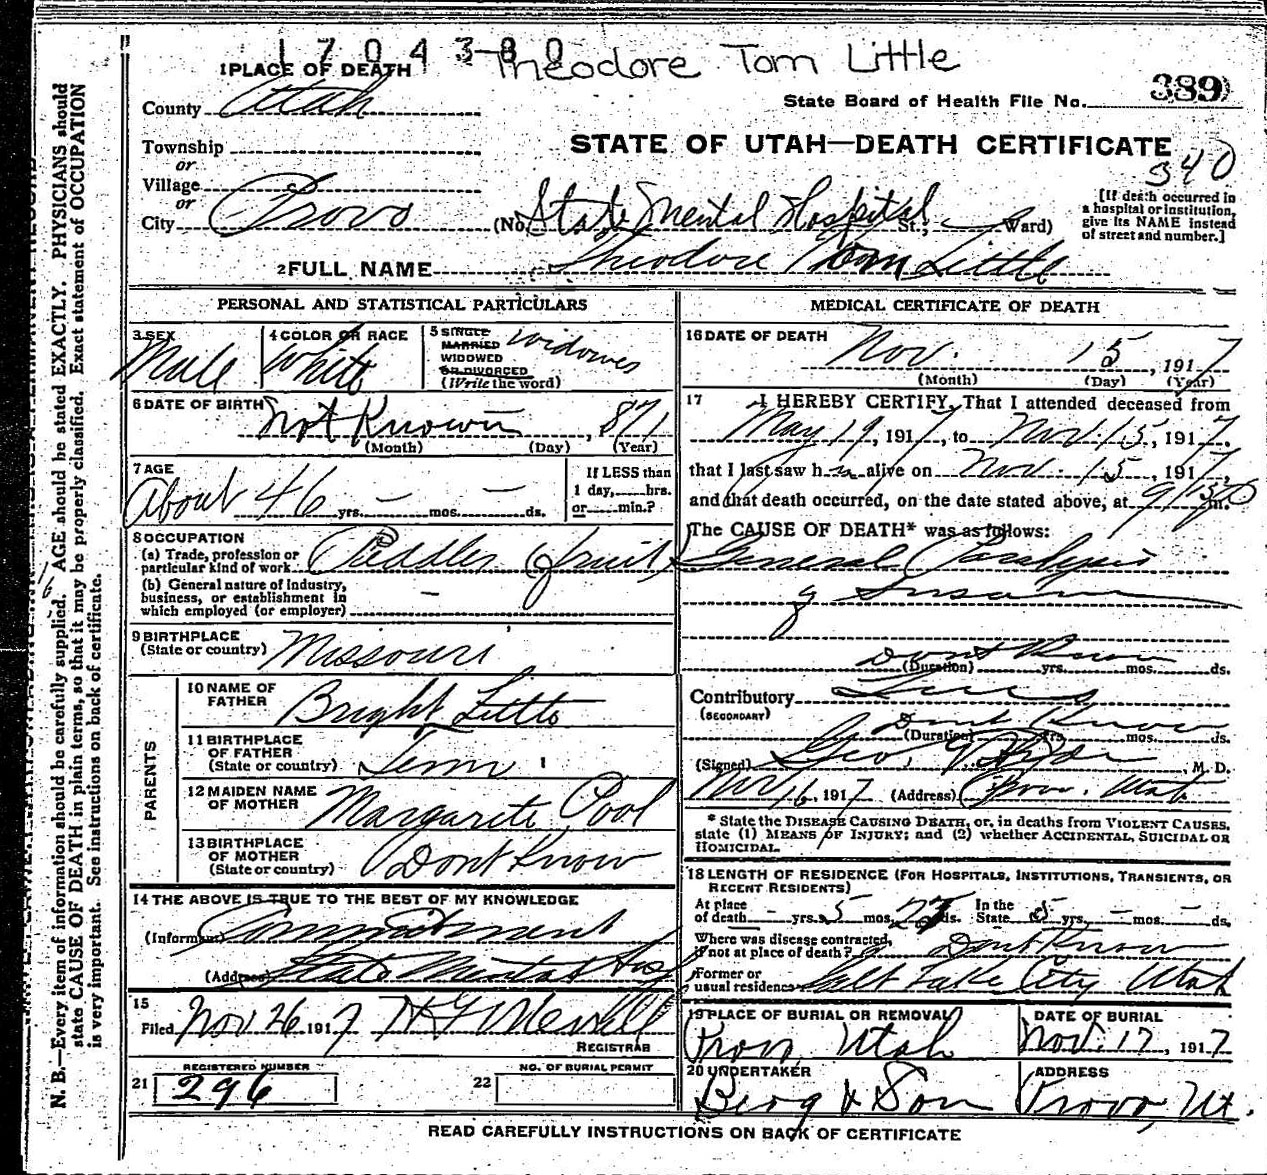 1704380 Theodore Tom Little
1 PLACE OF DEATH
County Utah
State Board of Health File No. 389
STATE OF UTAH—DEATH CERTIFICATE
340
Township
or
Village
or
City Provo (No. State Mental Hospital St.; Ward)
[If death occurred in a hospital or institution, give its NAME instead of street and number.]
2 FULL NAME Theodore Tom Little
PERSONAL AND STATISTICAL PARTICULARS
3 SEX Male
4 COLOR OR RACE White
5 SINGLE
MARRIED
WIDOWED
OR DIVORCED
(Write the word) Widower
6 DATE OF BIRTH Not Known, 871
(Month) (Day) (Year)
7 AGE About 46 yrs. — mos. — ds.
If LESS than
1 day, hrs.
or min.?
8 OCCUPATION
(a) Trade, profession or
particular kind of work Peddler fruit
(b) General nature of industry,
business, or establishment in
which employed (or employer) —
9 BIRTHPLACE
(State or country) Missouri
PARENTS
10 NAME OF
FATHER Bright Little
11 BIRTHPLACE
OF FATHER
(State or country) Tenn
12 MAIDEN NAME
OF MOTHER Margarite Pool
13 BIRTHPLACE
OF MOTHER
(State or country) Dont Know
14 THE ABOVE IS TRUE TO THE BEST OF MY KNOWLEDGE
(Informant) Commitment
(Address) State Mental Hosp
15
Filed Nov 26 1917
REGISTRAR
REGISTERED NUMBER
21 296
NO. OF BURIAL PERMIT
22
MEDICAL CERTIFICATE OF DEATH
16 DATE OF DEATH Nov. 15, 1917
(Month) (Day) (Year)
17 I HEREBY CERTIFY, That I attended deceased from
May 19, 1917, to Nov. 15, 1917,
that I last saw him alive on Nov. 15, 1917,
and that death occurred, on the date stated above, at m.
The CAUSE OF DEATH* was as follows:
General Paralysis
of Insane
Dont Know
(Duration) yrs. mos. ds.
Contributory Lues
(SECONDARY)
Dont Know
(Duration) yrs. mos. ds.
(Signed) Geo. , M. D.
Nov 16, 1917 (Address) Provo. Utah
* State the DISEASE CAUSING DEATH, or, in deaths from VIOLENT CAUSES,
state (1) MEANS OF INJURY; and (2) whether ACCIDENTAL, SUICIDAL OR
HOMICIDAL.
18 LENGTH OF RESIDENCE (FOR HOSPITALS, INSTITUTIONS, TRANSIENTS, OR
RECENT RESIDENTS)
At place
of death — yrs. 5 mos. ds. In the State 5 yrs. — mos. — ds.
Where was disease contracted,
if not at place of death? Dont Know
Former or
usual residence Salt Lake City Utah
19 PLACE OF BURIAL OR REMOVAL
Provo, Utah
DATE OF BURIAL
Nov. 17, 1917
20 UNDERTAKER
Berg & Son
ADDRESS
Provo, Ut.
READ CAREFULLY INSTRUCTIONS ON BACK OF CERTIFICATE
N. B.—Every item of information should be carefully supplied. AGE should be stated EXACTLY. PHYSICIANS should
state CAUSE OF DEATH in plain terms, so that it may be properly classified. Exact statement of OCCUPATION
is very important. See instructions on back of certificate.